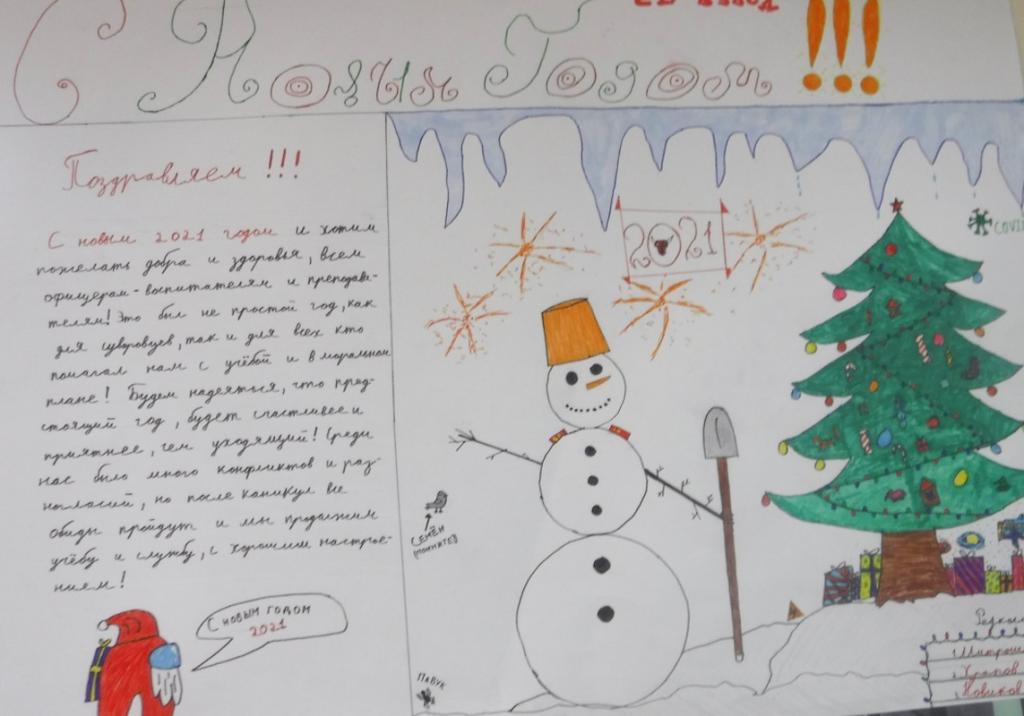 С Новым Годом !!!
Поздравляем !!!
С новым 2021 годом и хотим
пожелать добра и здоровья, всем
офицерам-воспитателям и преподава-
телям! Это был не простой год, как
для суворовцев, так и для всех кто
помагал нам с учёбой и в моральном
плане! Будем надеяться, что пред-
стоящий год, будет счастливее и
приятнее, чем уходящий! Среди
нас было много конфликтов и раз-
ногласий, но после каникул все
обиды пройдут и мы продолжим
учёбу и службу, с хорошим настрое-
нием!
С новым годом
2021
2021
COVI
Семён
(помните)
Павук
Редкол
1. Митрош
Новиков